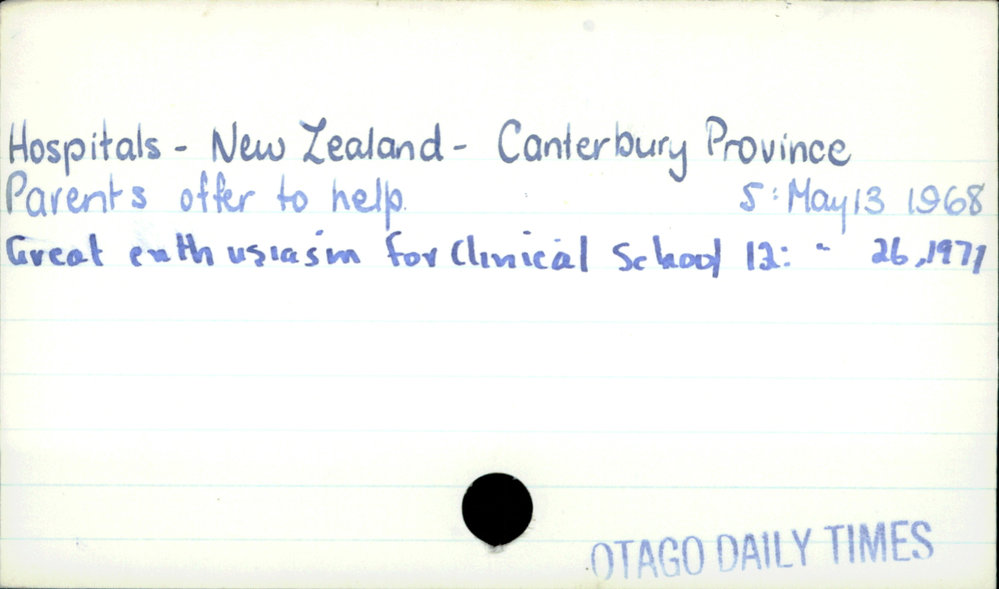 Hospitals - New Zealand - Canterbury Province
Parents offer to help. 5: May 13 1968
Great enthusiasm for Clinical School 12: " 26, 1971
OTAGO DAILY TIMES